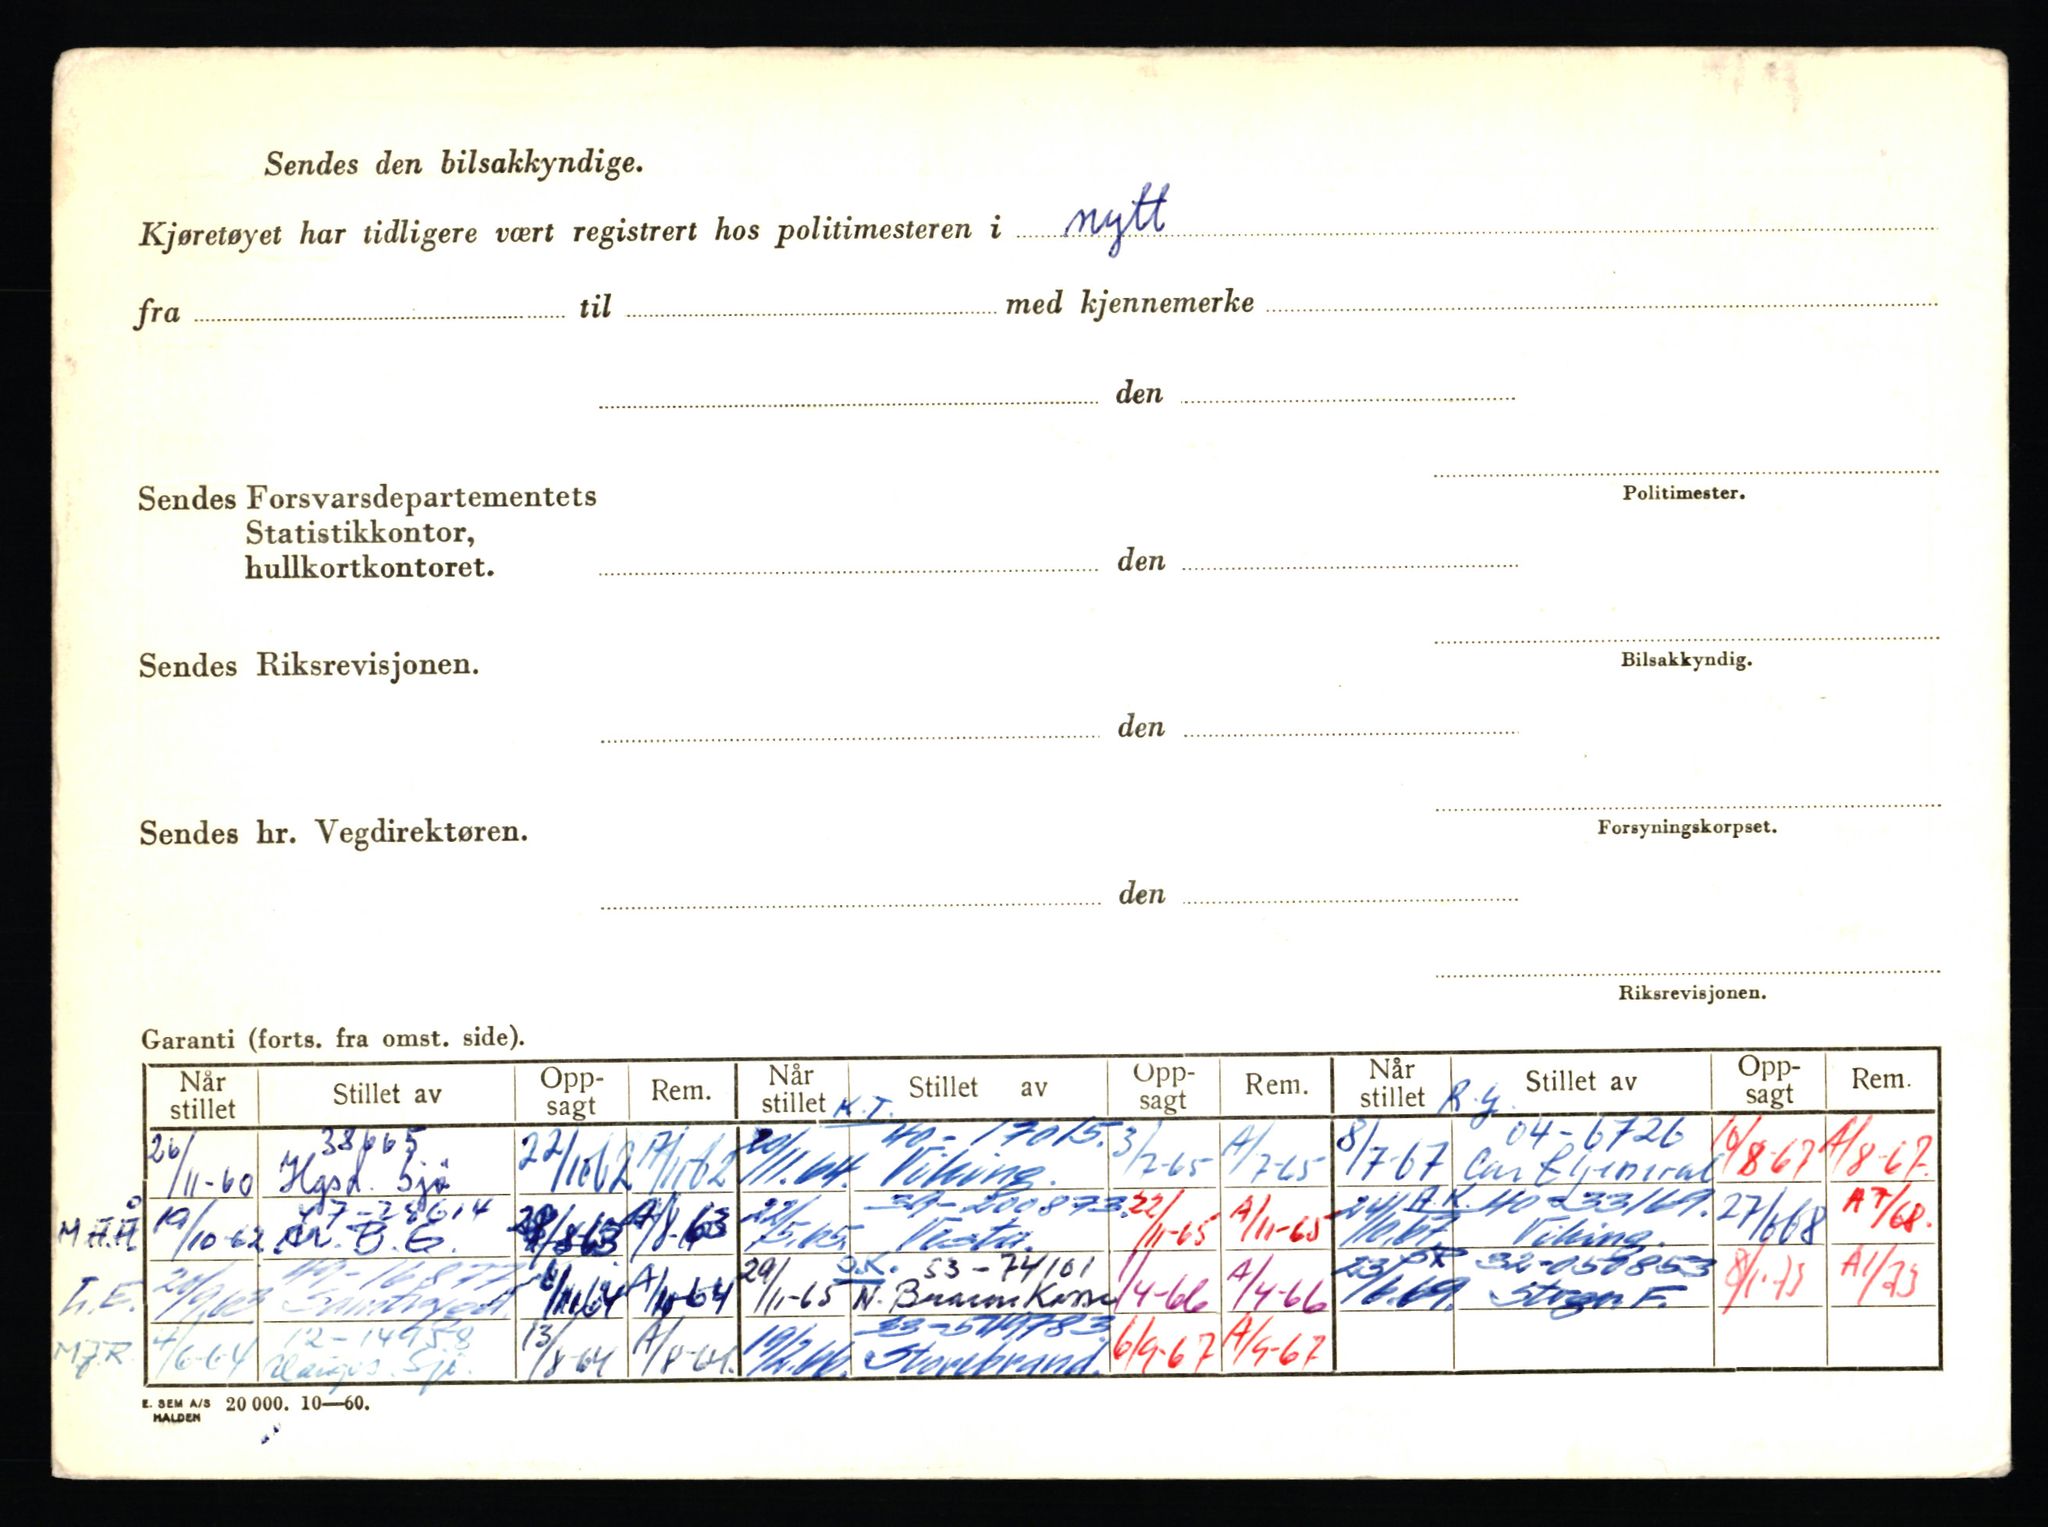 Sendes den bilsakkyndige.
Kjøretøyet har tidligere vært registrert hos politimesteren i nytt
fra til med kjennemerke
den
Politimester.
Sendes Forsvarsdepartementets
Statistikkontor,
hullkortkontoret.
den
Bilsakkyndig.
Sendes Riksrevisjonen.
den
Forsyningskorpset.
Sendes hr. Vegdirektøren.
den
Riksrevisjonen.
Garanti (forts. fra omst. side).
Når stillet Stillet av Oppsagt Rem. Når stillet Stillet av Oppsagt Rem. Når stillet Stillet av Oppsagt Rem.
K.T. R.G.
26/11-60 38665 Hgsd. Sjø 22/10 62 A/11 62 20/11.64. 40-17015. Viking. 3/7-65 A/7-65 8/7-67 04-6726 Car & General 10/8-67 A/8-67.
19/10-62 47-28614 8/8-63 A/8-63 22/5.65 39-200873. Vesta. 22/11-65 A/11-65 A.K. 40-33169. Viking. 27/6 68 A7/68.
I.E. 49-16877 A/10-64 29/11-65 O.K. 53-74101 N. Kasse 1/4-66 A/4-66 23/6.69. 32-050853 F. 8/1.73 A1/73
4/6-64 12-14958 Sjø. 13/8-64 A/8-64. 19/2.66. 33-549783. Storebrand. 6/9-67 A/9-67
E. SEM A/S HALDEN 20 000. 10—60.